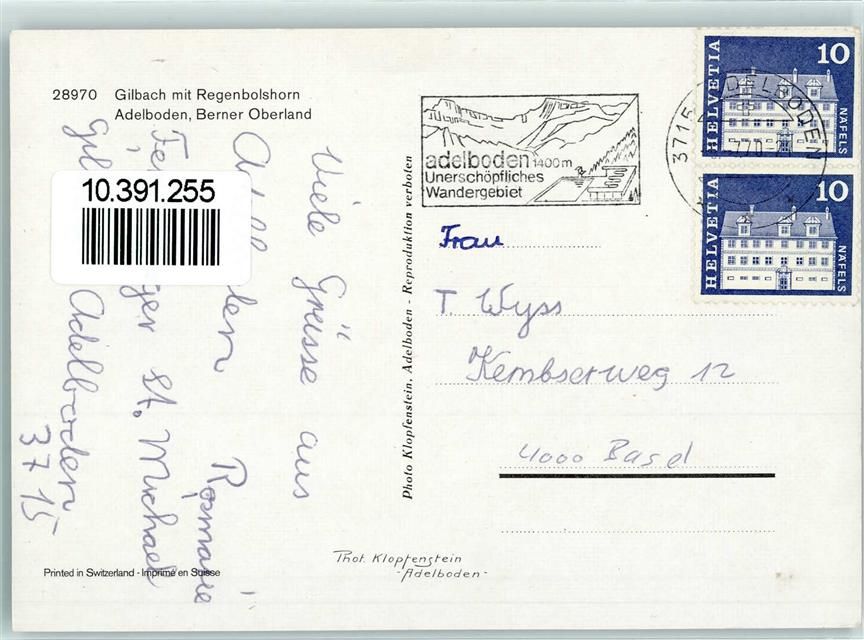 28970 Gilbach mit Regenbolshorn
Adelboden, Berner Oberland
10.391.255
Viele Grüsse aus
Rosmarie
St. Michael
Adelboden
3715
Printed in Switzerland - Imprimé en Suisse
Photo Klopfenstein, Adelboden - Reproduktion verboten
Phot. Klopfenstein
- Adelboden -
adelboden 1400m
Unerschöpfliches
Wandergebiet
3715 ADELBODEN
HELVETIA 10 NÄFELS
HELVETIA 10 NÄFELS
Frau
T. Wyss
Kembserweg 12
4000 Basel